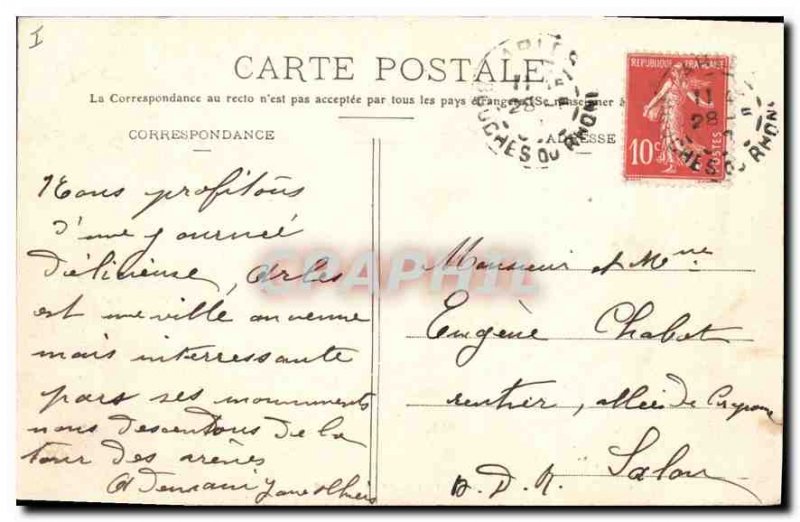 I
CARTE POSTALE
La Correspondance au recto n'est pas acceptée par tous les pays étrangers (Se renseigner à
CORRESPONDANCE
ADRESSE
ARLES
11
28
BOUCHES DU RHONE
REPUBLIQUE FRANÇAISE
10c
POSTES
11
28
CHES DU RHONE
CPAPHIL
Nous profitons
d'une journeé
délicieuse, Arles
est une ville ancienne
mais interressante
pars ses monuments
nous descendons de la
tour des arènes
A demain
Monsieur et Mme
Eugène Chabot
rentier, allées de Craponne
Salon
B. D. R.